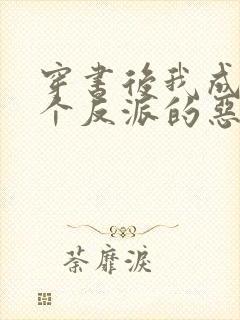 穿书后我成
个反派的恶
荼靡淚